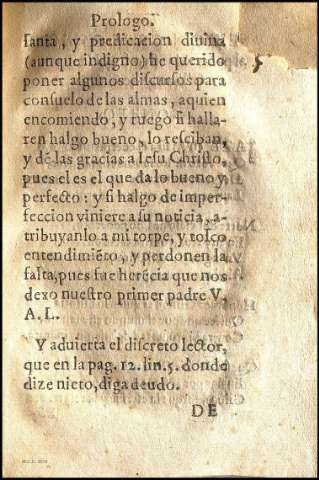 Prologo.
ſanta, y predicacion diuina
(aunque indigno) he querido
poner algunos diſcurſos para
conſuelo de las almas, aquien
encomiendo, y ruego ſi halla-
ren halgo bueno, lo reſciban,
y dẽ las gracias a Ieſu Chriſto,
pues el es el que da lo bueno y
perfecto: y ſi halgo de imper-
feccion viniere a ſu noticia, a-
tribuyanlo a mi torpe, y toſco
entendimiẽto, y perdonen la
falta, pues fue herẽcia que nos
dexo nueſtro primer padre V.
A. L.
Y aduierta el diſcreto lector,
que en la pag. 12. lin. 5. donde
dize nieto, diga deudo.
DE